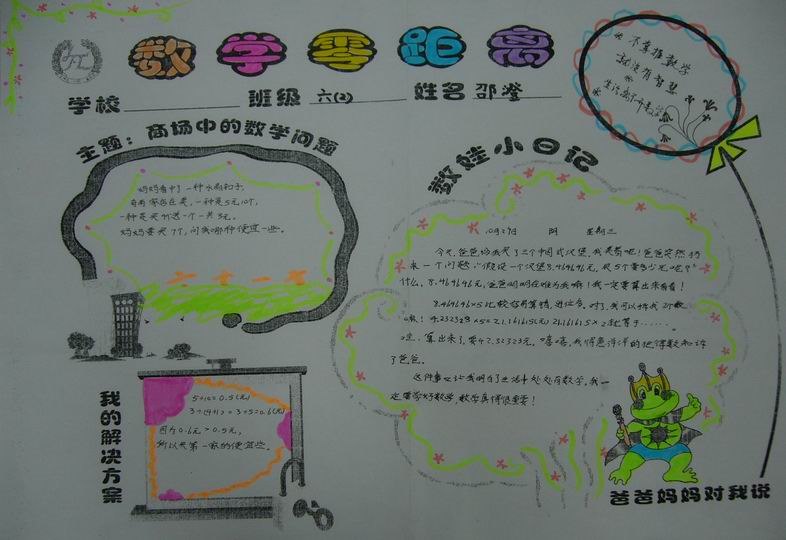 数学零距离
学校 班级 六(2) 姓名 邵澄
不掌握数学
就没有智慧
生活离不开数学
主题：商场中的数学问题
妈妈看中了一种水果和子，
有两家在卖，一种是5元10个，
一种是买4个送1个一共3元。
妈妈要买7个，问我哪种便宜一些。
我的解决方案
5÷10=0.5(元)
3÷(4+1)=3÷5=0.6(元)
因为0.6元>0.5元，
所以买第一家的便宜些。
数娃小日记
10月29日 阴 星期三
今天，爸爸给我买了三个中国式汉堡，我是帮吧！爸爸突然提
来一个问题：“假设一个汉堡8.464646元，买5个要多少元呢？”
什么，8.464646元，爸爸明明在难为我嘛！我一定要算出来看看！
8.464646×5比较容易算错，进位多。对了，我可以拆成2个数
嘛！4.232323×5=21.161615(元) 21.161615×2就等于……
哇，算出来了，要42.32323元。“嘻嘻，我得意洋洋的把得数告诉
了爸爸。
这件事让我明白了生活中处处有数学，我一
定要学好数学，数学真得很重要！
爸爸妈妈对我说